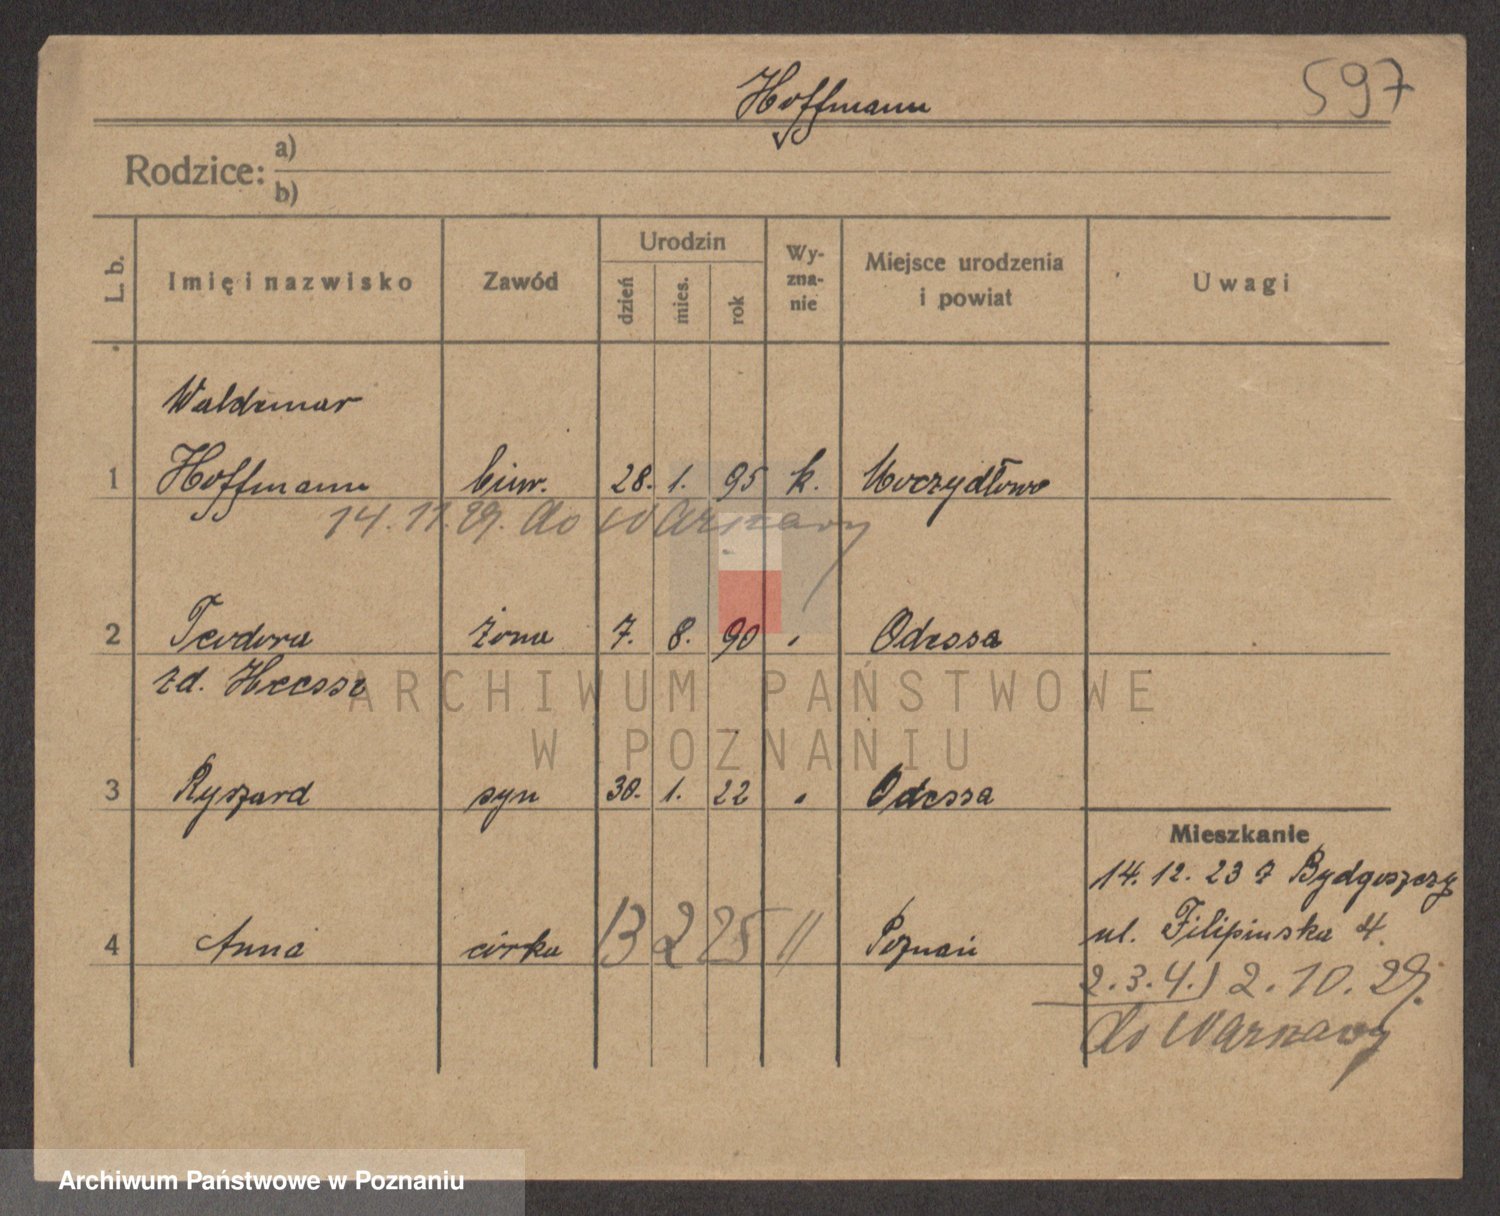 Hoffmann
597
Rodzice: a)
b)
L. b. Imię i nazwisko Zawód Urodzin dzień mies. rok Wy-zna-nie Miejsce urodzenia i powiat Uwagi
Waldemar
1 Hoffmann biur. 28. 1. 95 k. Moczydłowo
14.11.29. do Warszawy
2 Teodora żona 7. 8. 90 Odessa
zd. Heesse
3 Ryszard syn 30. 1. 22 Odessa
Mieszkanie
14. 12. 23 z Bydgoszczy
4 Anna córka 13 2 25 " Poznań
ul. Filipińska 4.
2.3.4.) 2.10.29.
do Warszawy
ARCHIWUM PAŃSTWOWE
W POZNANIU
Archiwum Państwowe w Poznaniu